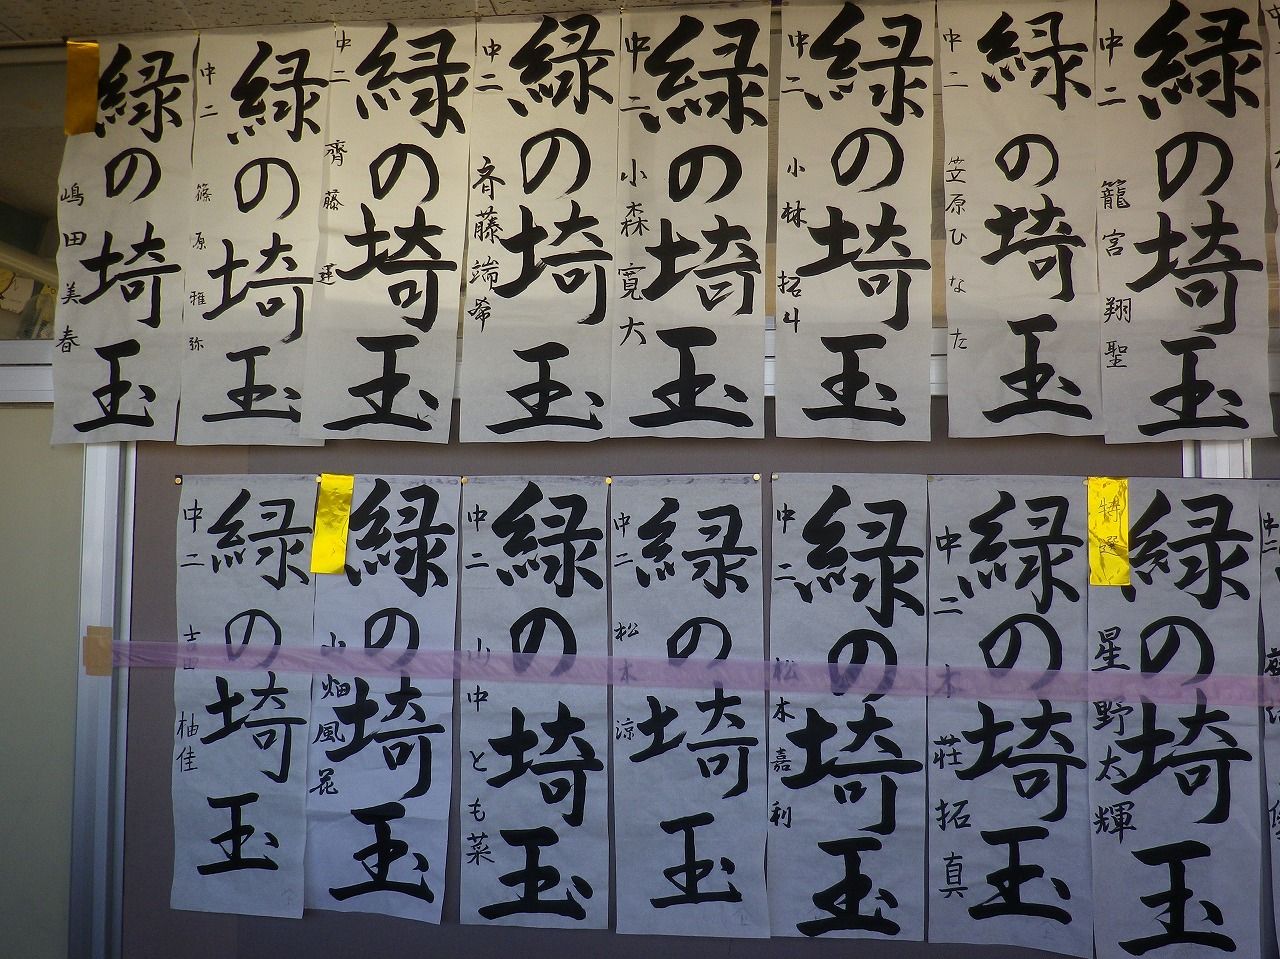 緑の埼玉
嶋田美春
緑の埼玉
中二 篠原雅弥
緑の埼玉
中二 齊藤蓮
緑の埼玉
中二 斉藤端希
緑の埼玉
中二 小森寛大
緑の埼玉
中二 小林拓斗
緑の埼玉
中二 笠原ひなた
緑の埼玉
中二 籠宮翔聖
緑の埼玉
中二 吉田柚佳
緑の埼玉
山畑風花
緑の埼玉
中二 山中とも菜
緑の埼玉
中二 松本涼
緑の埼玉
中二 松木嘉利
緑の埼玉
中二 本荘拓真
特選
緑の埼玉
星野太輝
中二